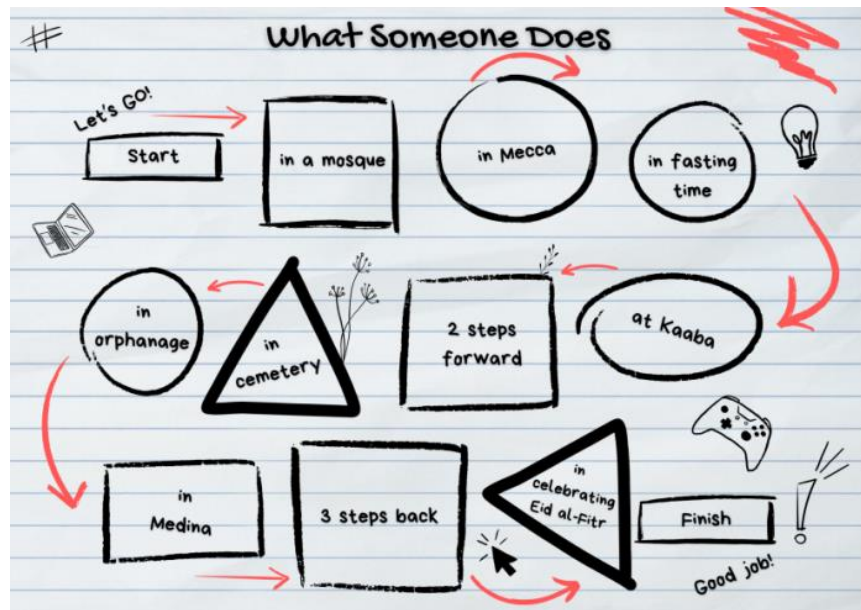 What Someone Does
Let's GO!
Start
in a mosque
in Mecca
in fasting
time
at Kaaba
2 steps
forward
in
cemetery
in
orphanage
in
Medina
3 steps back
in
celebrating
Eid al-Fitr
Finish
Good job!